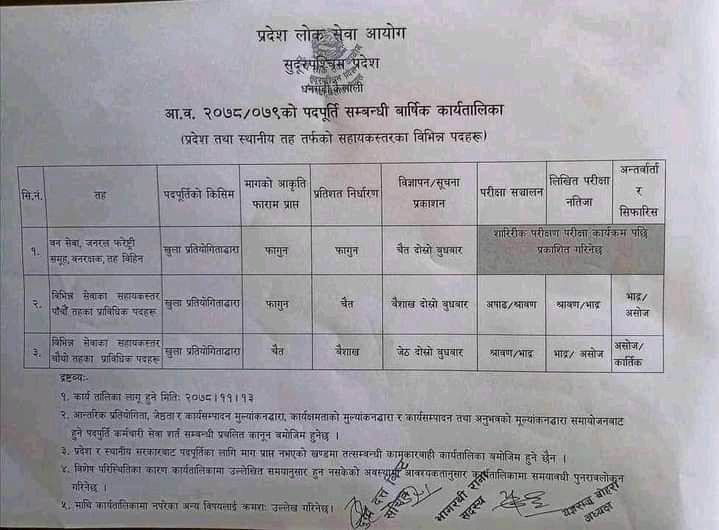 प्रदेश लोक सेवा आयोग
सुदूरपश्चिम प्रदेश
धनगढी कैलाली
आ.व. २०७८/०७९को पदपूर्ति सम्बन्धी बार्षिक कार्यतालिका
(प्रदेश तथा स्थानीय तह तर्फको सहायकस्तरका विभिन्न पदहरू)
सि.नं. तह पदपूर्तिको किसिम मागको आकृति फाराम प्राप्त प्रतिशत निर्धारण विज्ञापन/सूचना प्रकाशन परीक्षा सञ्चालन लिखित परीक्षा नतिजा अन्तर्वार्ता र सिफारिस
१. वन सेवा, जनरल फरेष्ट्री समूह, वनरक्षक, तह विहिन खुला प्रतियोगिताद्धारा फागुन फागुन चैत दोस्रो बुधबार शारिरीक परीक्षण परीक्षा कार्यक्रम पछि प्रकाशित गरिनेछ
२. विभिन्न सेवाका सहायकस्तर पाँचौं तहका प्राविधिक पदहरू खुला प्रतियोगिताद्धारा फागुन चैत बैशाख दोस्रो बुधबार अषाढ/श्रावण श्रावण/भाद्र भाद्र/असोज
३. विभिन्न सेवाका सहायकस्तर चौथो तहका प्राविधिक पदहरू खुला प्रतियोगिताद्धारा चैत बैशाख जेठ दोस्रो बुधबार श्रावण/भाद्र भाद्र/ असोज असोज/कार्तिक
द्रष्टव्यः-
१. कार्य तालिका लागू हुने मितिः २०७८।११।१३
२. आन्तरिक प्रतियोगिता, जेष्ठता र कार्यसम्पादन मुल्यांकनद्धारा, कार्यक्षमताको मुल्यांकनद्धारा र कार्यसम्पादन तथा अनुभवको मूल्यांकनद्धारा समायोजनबाट
हुने पदपुर्ति कर्मचारी सेवा शर्त सम्बन्धी प्रचलित कानून बमोजिम हुनेछ ।
३. प्रदेश र स्थानीय सरकारबाट पदपूर्तिका लागि माग प्राप्त नभएको खण्डमा तत्सम्बन्धी कामकारवाही कार्यतालिका बमोजिम हुने छैन ।
४. विशेष परिस्थितिका कारण कार्यतालिकामा उल्लेखित समयानुसार हुन नसकेको अवस्थामा आवश्यकतानुसार कार्यतालिकामा समयावधी पुनरावलोकन
गरिनेछ ।
५. माथि कार्यतालिकामा नपरेका अन्य विषयलाई क्रमशः उल्लेख गरिनेछ।
दत्त
सचिव
भागरथी
सदस्य
यज्ञराज बोहरा
अध्यक्ष